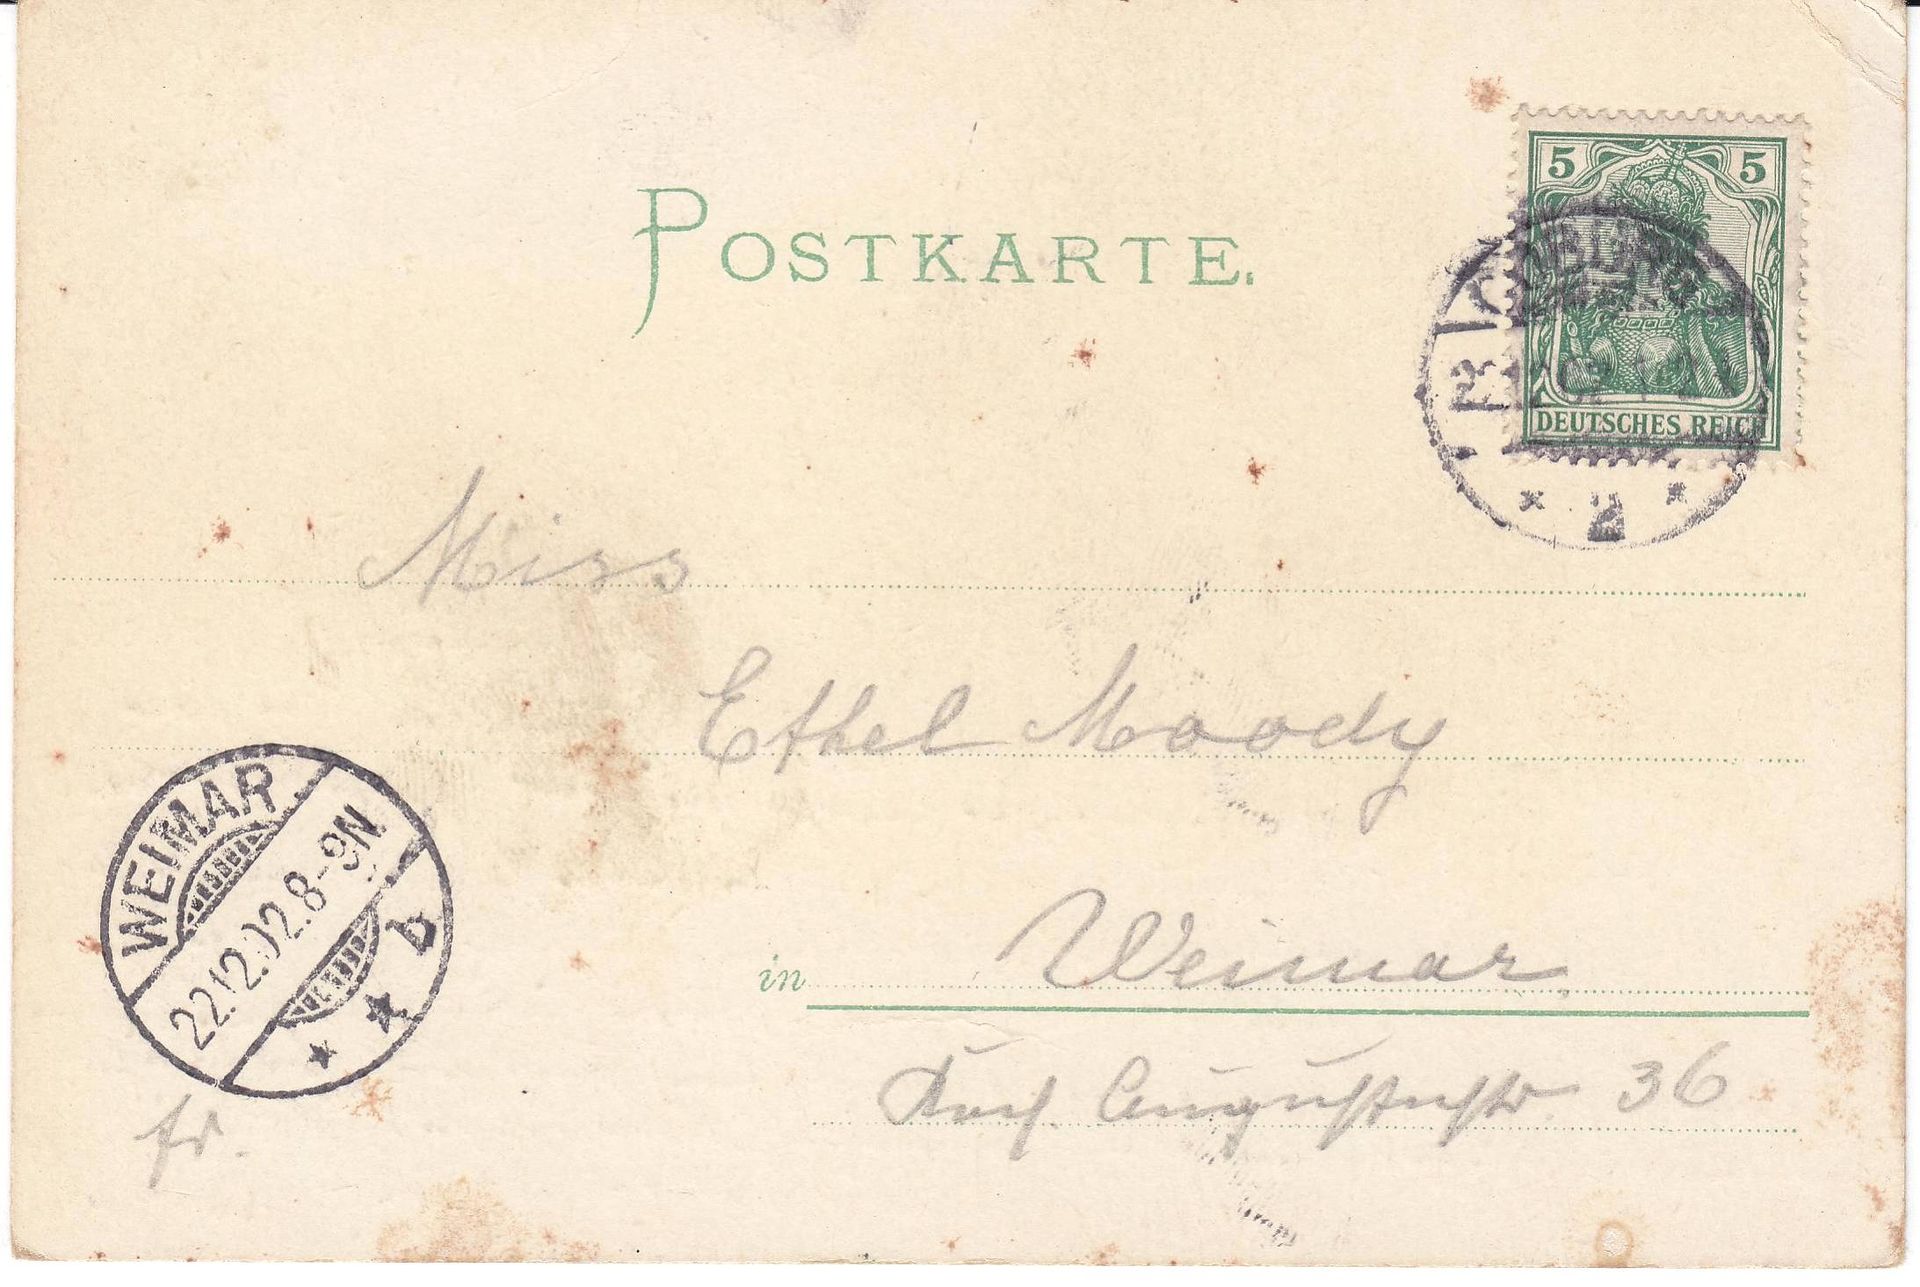 POSTKARTE.
5 5
COBURG
DEUTSCHES REICH
2
Miss
Ethel Moody
WEIMAR
22.12.02.8-9N
b
in Weimar.
36
fr.